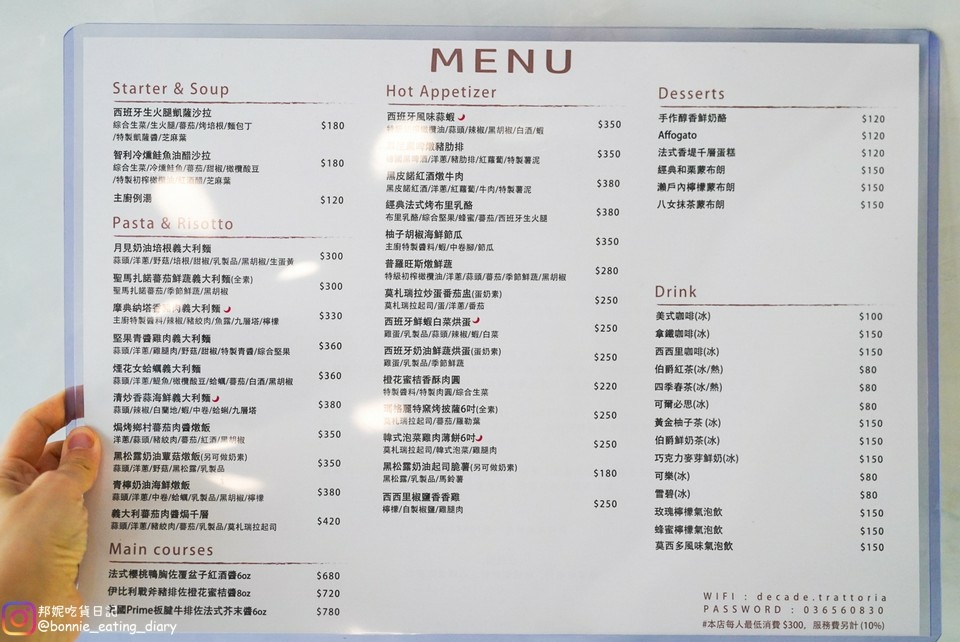 MENU
Starter & Soup
西班牙生火腿凱薩沙拉 $180
綜合生菜/生火腿/蕃茄/烤培根/麵包丁
/特製凱薩醬/芝麻葉
智利冷燻鮭魚油醋沙拉 $180
綜合生菜/冷燻鮭魚/蕃茄/甜椒/橄欖酸豆
/特製初榨橄欖 醋/芝麻葉
主廚例湯 $120
Pasta & Risotto
月見奶油培根義大利麵 $300
蒜頭/洋蔥/野菇/培根/甜椒/乳製品/黑胡椒/生蛋黃
聖馬扎諾蕃茄鮮蔬義大利麵(全素) $300
聖馬扎諾蕃茄/季節鮮蔬/黑胡椒
摩典納塔香 肉義大利麵 $330
主廚特製醬料/辣椒/豬絞肉/魚露/九層塔/檸檬
堅果青醬雞肉義大利麵 $360
蒜頭/洋蔥/雞腿肉/野菇/甜椒/特製青醬/綜合堅果
煙花女蛤蠣義大利麵 $360
蒜頭/洋蔥/鯷魚/橄欖酸豆/蛤蠣/蕃茄/白酒/黑胡椒
清炒香蒜海鮮義大利麵 $380
蒜頭/辣椒/白蘭地/蝦/中卷/蛤蜊/九層塔
焗烤鄉村蕃茄肉醬燉飯 $350
洋蔥/蒜頭/豬絞肉/蕃茄/紅酒/黑胡椒
黑松露奶油蕈菇燉飯(另可做奶素) $350
蒜頭/洋蔥/野菇/黑松露/乳製品
青檸奶油海鮮燉飯 $380
蒜頭/洋蔥/中卷/蛤蠣/乳製品/黑胡椒/檸檬
義大利蕃茄肉醬焗千層 $420
蒜頭/洋蔥/豬絞肉/蕃茄/乳製品/莫札瑞拉起司
Main courses
法式櫻桃鴨胸佐覆盆子紅酒醬6oz $680
伊比利戰斧豬排佐橙花蜜桔醬8oz $720
國Prime板腱牛排佐法式芥末醬6oz $780
Hot Appetizer
西班牙風味蒜蝦 $350
欖油/蒜頭/辣椒/黑胡椒/白酒/蝦
燉豬肋排 $350
酒/洋蔥/豬肋排/紅蘿蔔/特製薯泥
黑皮諾紅酒燉牛肉 $380
黑皮諾紅酒/洋蔥/紅蘿蔔/牛肉/特製薯泥
經典法式烤布里乳酪 $380
布里乳酪/綜合堅果/蜂蜜/蕃茄/西班牙生火腿
柚子胡椒海鮮節瓜 $350
主廚特製醬料/蝦/中卷腳/節瓜
普羅旺斯燉鮮蔬 $280
特級初榨橄欖油/洋蔥/蒜頭/蕃茄/季節鮮蔬/黑胡椒
莫札瑞拉炒蛋番茄盅(蛋奶素) $250
莫札瑞拉起司/蛋/洋蔥/番茄
西班牙鮮蝦白菜烘蛋 $250
雞蛋/乳製品/蒜頭/辣椒/蝦/白菜
西班牙奶油鮮蔬烘蛋(蛋奶素) $250
雞蛋/乳製品/季節鮮蔬
橙花蜜桔香酥肉圓 $220
特製醬料/特製肉圓/綜合生菜
格麗特窯烤披薩6吋(全素) $250
莫札瑞拉起司/蕃茄/羅勒葉
韓式泡菜雞肉薄餅6吋 $250
莫札瑞拉起司/韓式泡菜/雞腿肉
黑松露奶油起司脆薯(另可做奶素) $180
黑松露/乳製品/馬鈴薯
西西里椒鹽香香雞 $250
檸檬/自製椒鹽/雞腿肉
Desserts
手作醇香鮮奶酪 $120
Affogato $120
法式香堤千層蛋糕 $120
經典和栗蒙布朗 $150
瀨戶內檸檬蒙布朗 $150
八女抹茶蒙布朗 $150
Drink
美式咖啡(冰) $100
拿鐵咖啡(冰) $150
西西里咖啡(冰) $150
伯爵紅茶(冰/熱) $80
四季春茶(冰/熱) $80
可爾必思(冰) $80
黃金柚子茶 (冰) $150
伯爵鮮奶茶(冰) $150
巧克力麥芽鮮奶(冰) $150
可樂(冰) $80
雪碧(冰) $80
玫瑰檸檬氣泡飲 $150
蜂蜜檸檬氣泡飲 $150
莫西多風味氣泡飲 $150
WIFI : decade.trattoria
PASSWORD : 036560830
#本店每人最低消費 $300，服務費另計 (10%)
邦妮吃貨日記
@bonnie_eating_diary